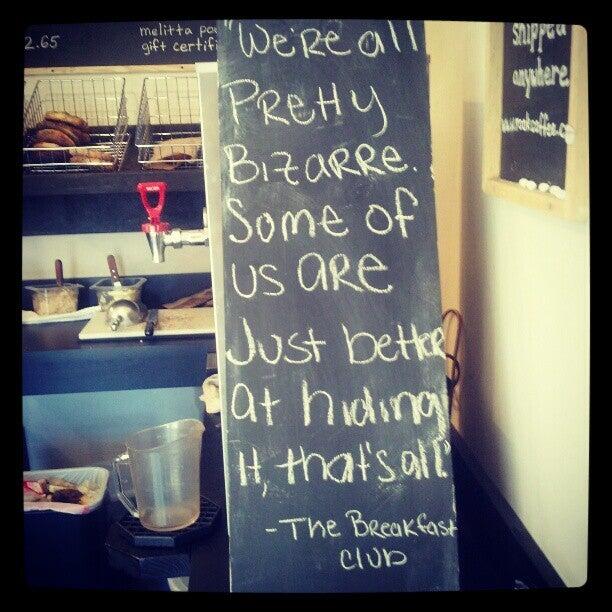 2.65
melitta
gift certifi
"We're all
Pretty
Bizarre.
Some of
us are
Just better
at hiding
it, that's all."
-The Breakfast
club
shipped
anywhere